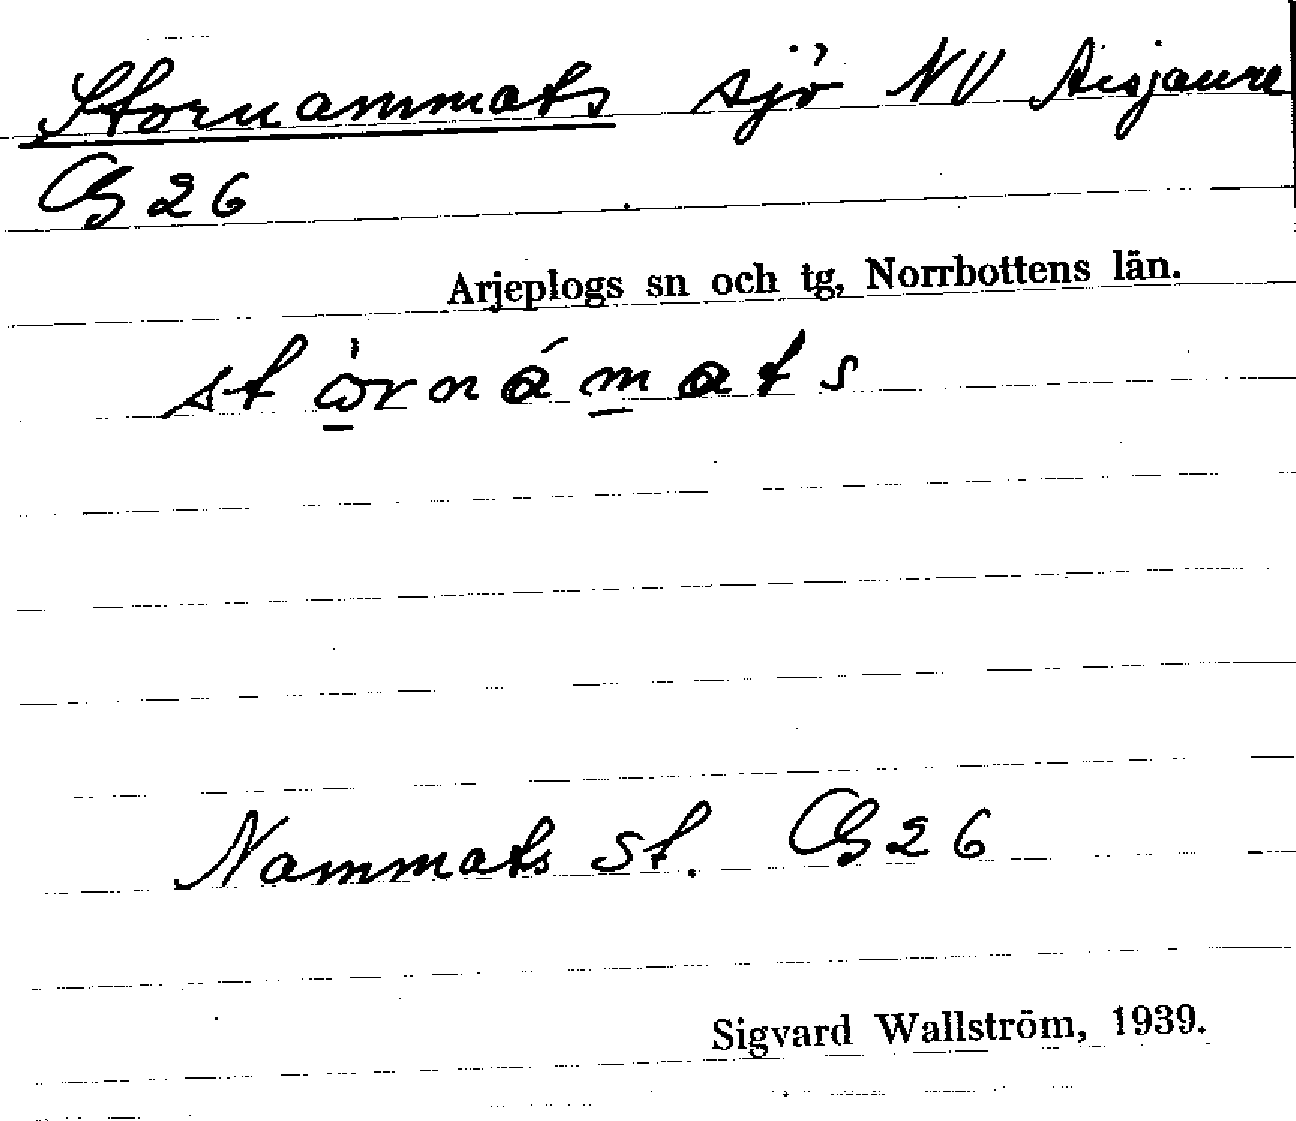 Stornammats sjö NV Aisjaure
CB 26
Arjeplogs sn och tg, Norrbottens län.
Nammats St. CB 26
Sigvard Wallström, 1939.